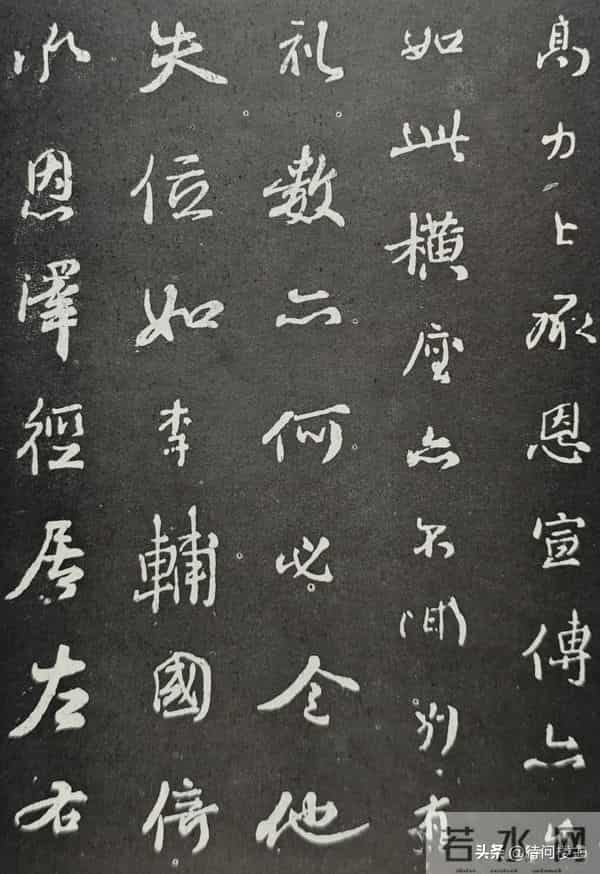 高力士承恩宣傳亦只
如此橫座亦不聞別有
礼數亦何必令他
失位如李輔國倚
承恩澤徑居左右
若水网
头条 @待问